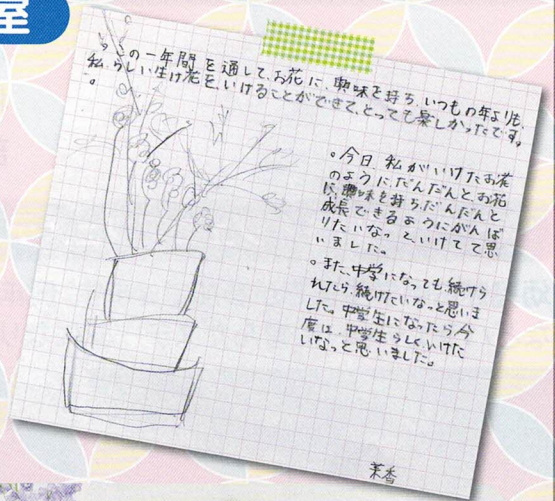 室
・この一年間を通して、お花に、興味を持ち、いつもの年よりも、
私らしい生け花を、いけることができて、とっても楽しかったです。
・今日 私がいけたお花
のように、だんだんと、お花
に、興味を持ちだんだんと
成長できるようにがんば
りたいなっと、いけてて思
いました。
・また、中学になっても、続けら
れたら、続けたいなっと思いま
した。中学生になったら、今
度は、中学生らしく、いけた
いなっと思いました。
茉香